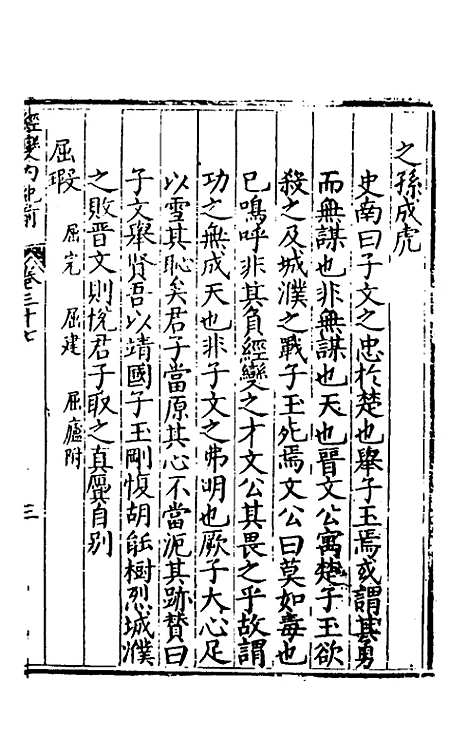 之孫成虎
史南曰子文之忠於楚也舉子玉焉或謂其勇
而無謀也非無謀也天也晉文公寓楚子玉欲
殺之及城濮之戰子玉死焉文公曰莫如毒也
已嗚呼非其負經變之才文公其畏之乎故謂
功之無成天也非子文之弗明也厥子大心足
以雪其恥矣君子當原其心不當泥其跡贊曰
子文舉賢吾以靖國子玉剛愎胡能樹烈城濮
之敗晉文則悅君子取之真贗自別
屈瑕 屈完 屈建 屈廬附
卷三十七 三